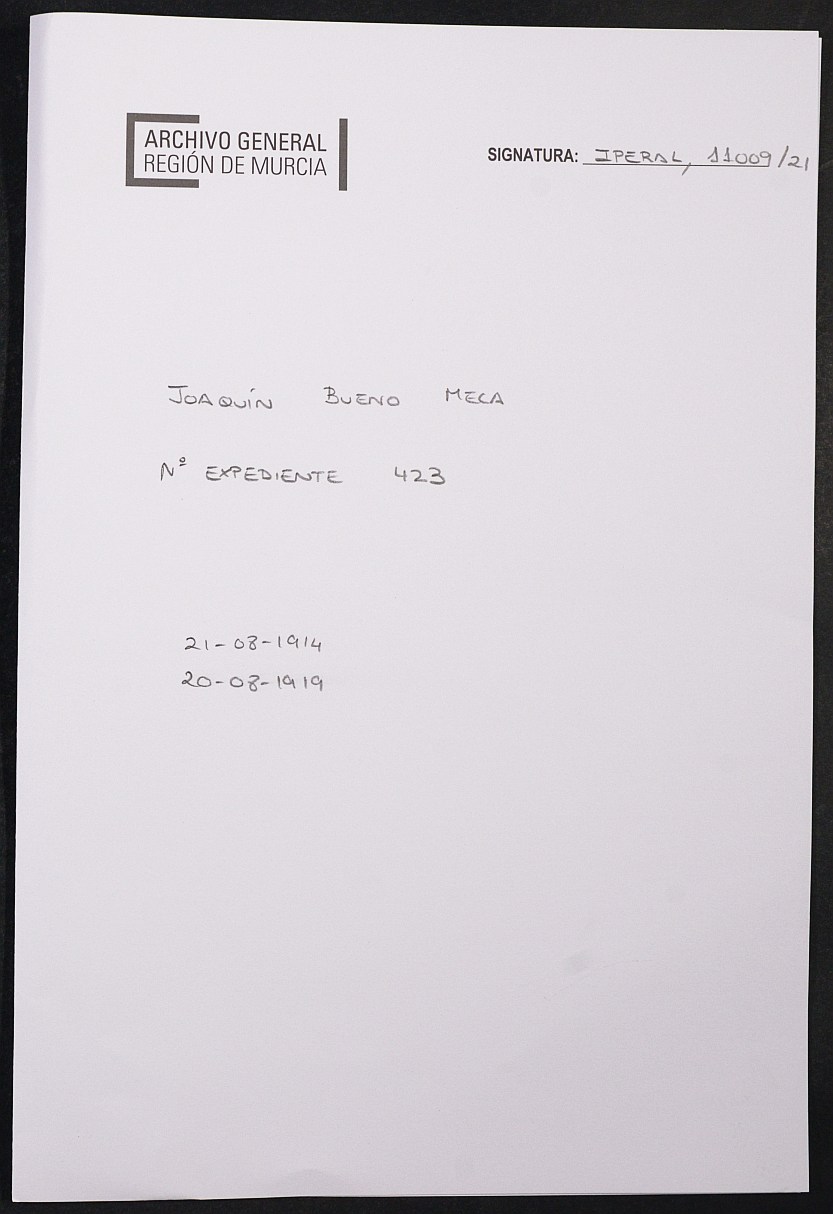 ARCHIVO GENERAL
REGIÓN DE MURCIA
SIGNATURA: IPERAL, 11009/21
JOAQUÍN BUENO MECA
Nº EXPEDIENTE 423
21-08-1914
20-08-1919